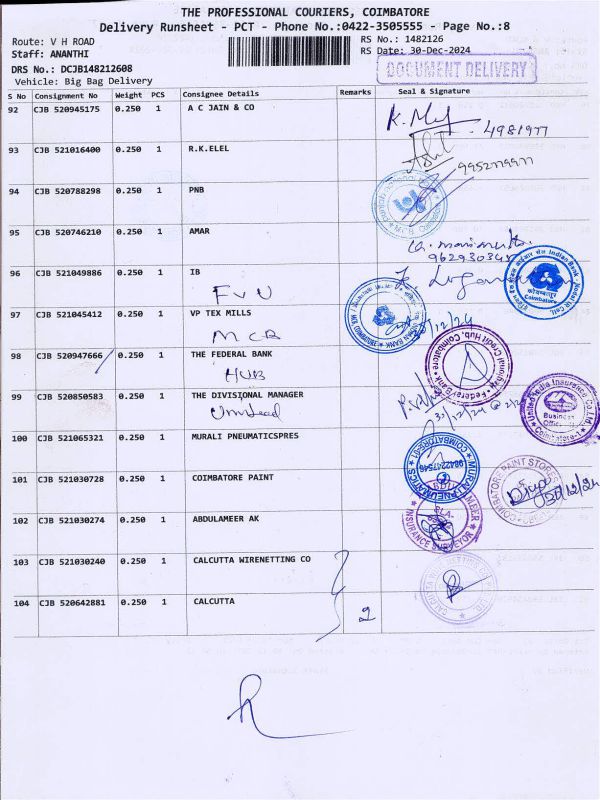 THE PROFESSIONAL COURIERS, COIMBATORE
Delivery Runsheet - PCT - Phone No.:0422-3505555 - Page No.:8
Route: V H ROAD
RS No.: 1482126
Staff: ANANTHI
RS Date: 30-Dec-2024
DRS No.: DCJB148212608
DOCUMENT DELIVERY
Vehicle: Big Bag Delivery
S No Consignment No Weight PCS Consignee Details Remarks Seal & Signature
92 CJB 520945175 0.250 1 A C JAIN & CO
4981977
93 CJB 521016400 0.250 1 R.K.ELEL
94 CJB 520788298 0.250 1 PNB
95 CJB 520746210 0.250 1 AMAR
96 CJB 521049886 0.250 1 IB
FVU
Indian Bank
Coimbatore
97 CJB 521045412 0.250 1 VP TEX MILLS
MCB
98 CJB 520947666 0.250 1 THE FEDERAL BANK
HUB
Credit Hub, Coimbatore
Federal Bank
99 CJB 520850583 0.250 1 THE DIVISIONAL MANAGER
United India Insurance Co. Ltd.
Business Office
Coimbatore
100 CJB 521065321 0.250 1 MURALI PNEUMATICSPRES
MURALI PNEUMATICS
9842247546
101 CJB 521030728 0.250 1 COIMBATORE PAINT
COIMBATORE PAINT STORES
30/12/24
102 CJB 521030274 0.250 1 ABDULAMEER AK
INSURANCE SURVEYOR
103 CJB 521030240 0.250 1 CALCUTTA WIRENETTING CO
104 CJB 520642881 0.250 1 CALCUTTA 2